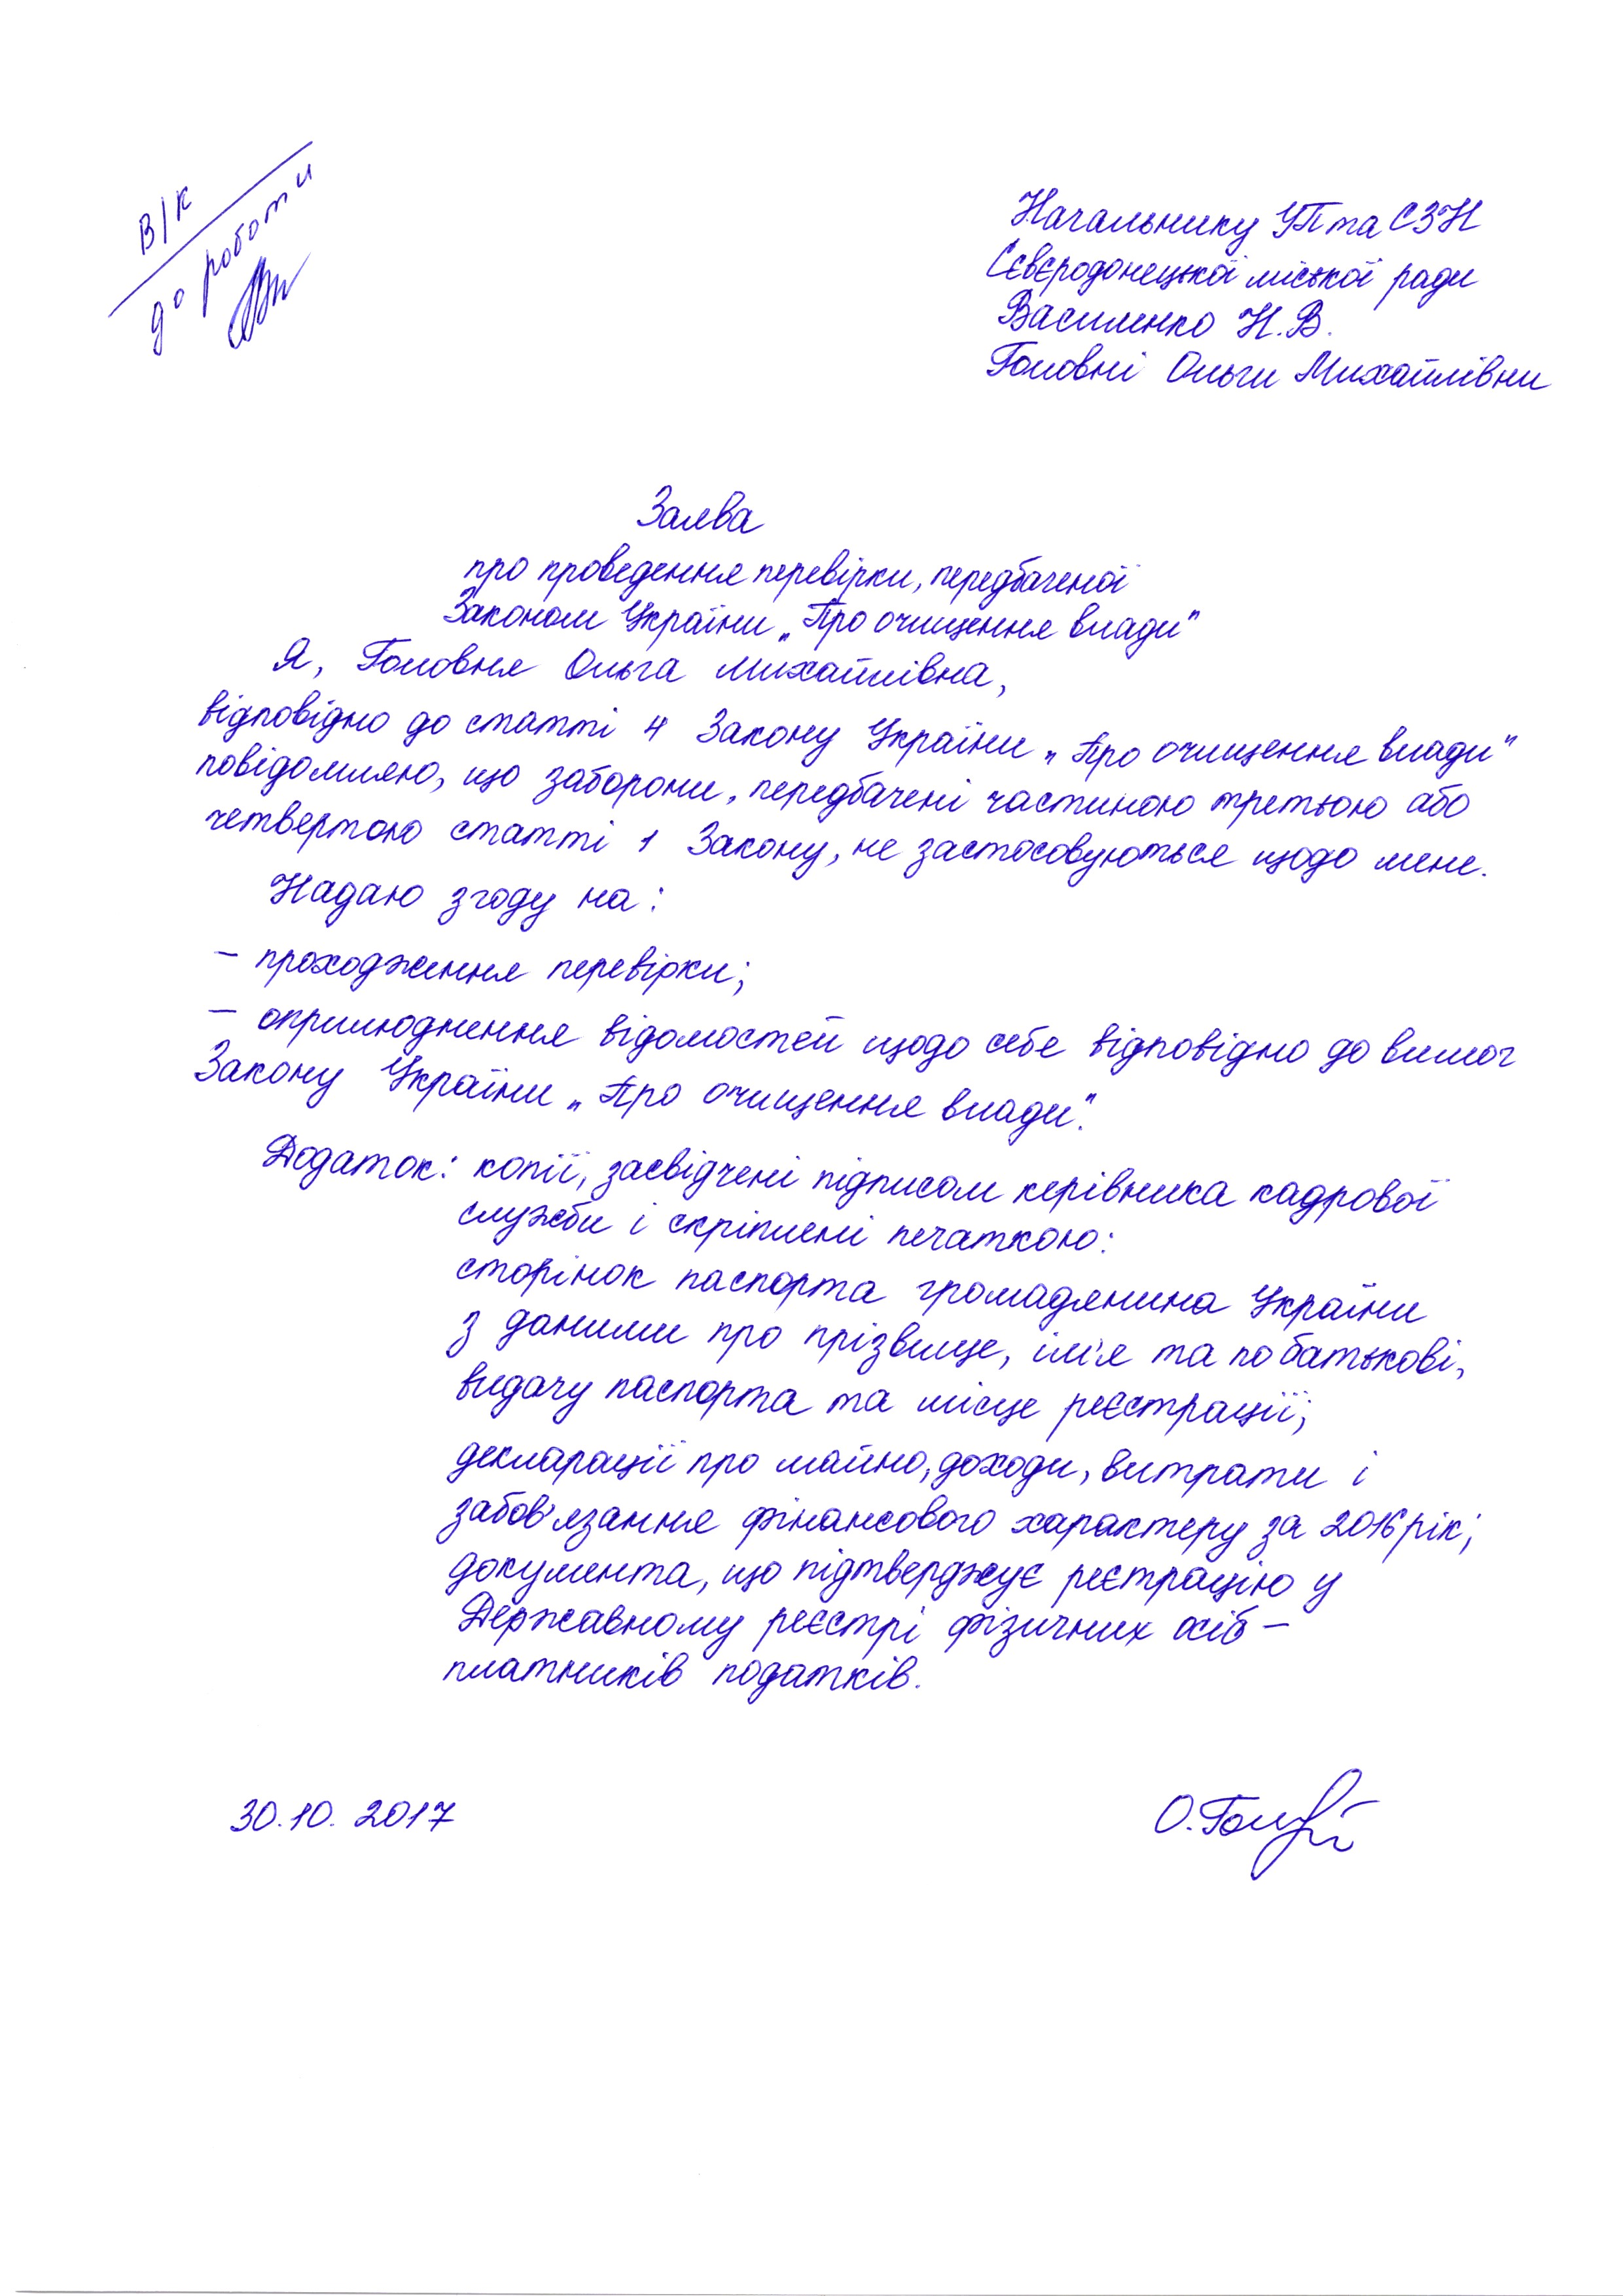 В/К
до роботи
Начальнику УП та СЗН
Сєвєродонецької міської ради
Василенко Н.В.
Головні Ольги Михайлівни
Заява
про проведення перевірки, передбаченої
Законом України „Про очищення влади"
Я, Головня Ольга Михайлівна,
відповідно до статті 4 Закону України „Про очищення влади"
повідомляю, що заборони, передбачені частиною третьою або
четвертою статті 1 Закону, не застосовуються щодо мене.
Надаю згоду на:
– проходження перевірки;
– оприлюднення відомостей щодо себе відповідно до вимог
Закону України „Про очищення влади".
Додаток: копії, засвідчені підписом керівника кадрової
служби і скріплені печаткою:
сторінок паспорта громадянина України
з даними про прізвище, ім'я та по батькові,
видачу паспорта та місце реєстрації;
декларації про майно, доходи, витрати і
забов'язання фінансового характеру за 2016 рік;
документа, що підтверджує реєстрацію у
Державному реєстрі фізичних осіб –
платників податків.
30.10.2017